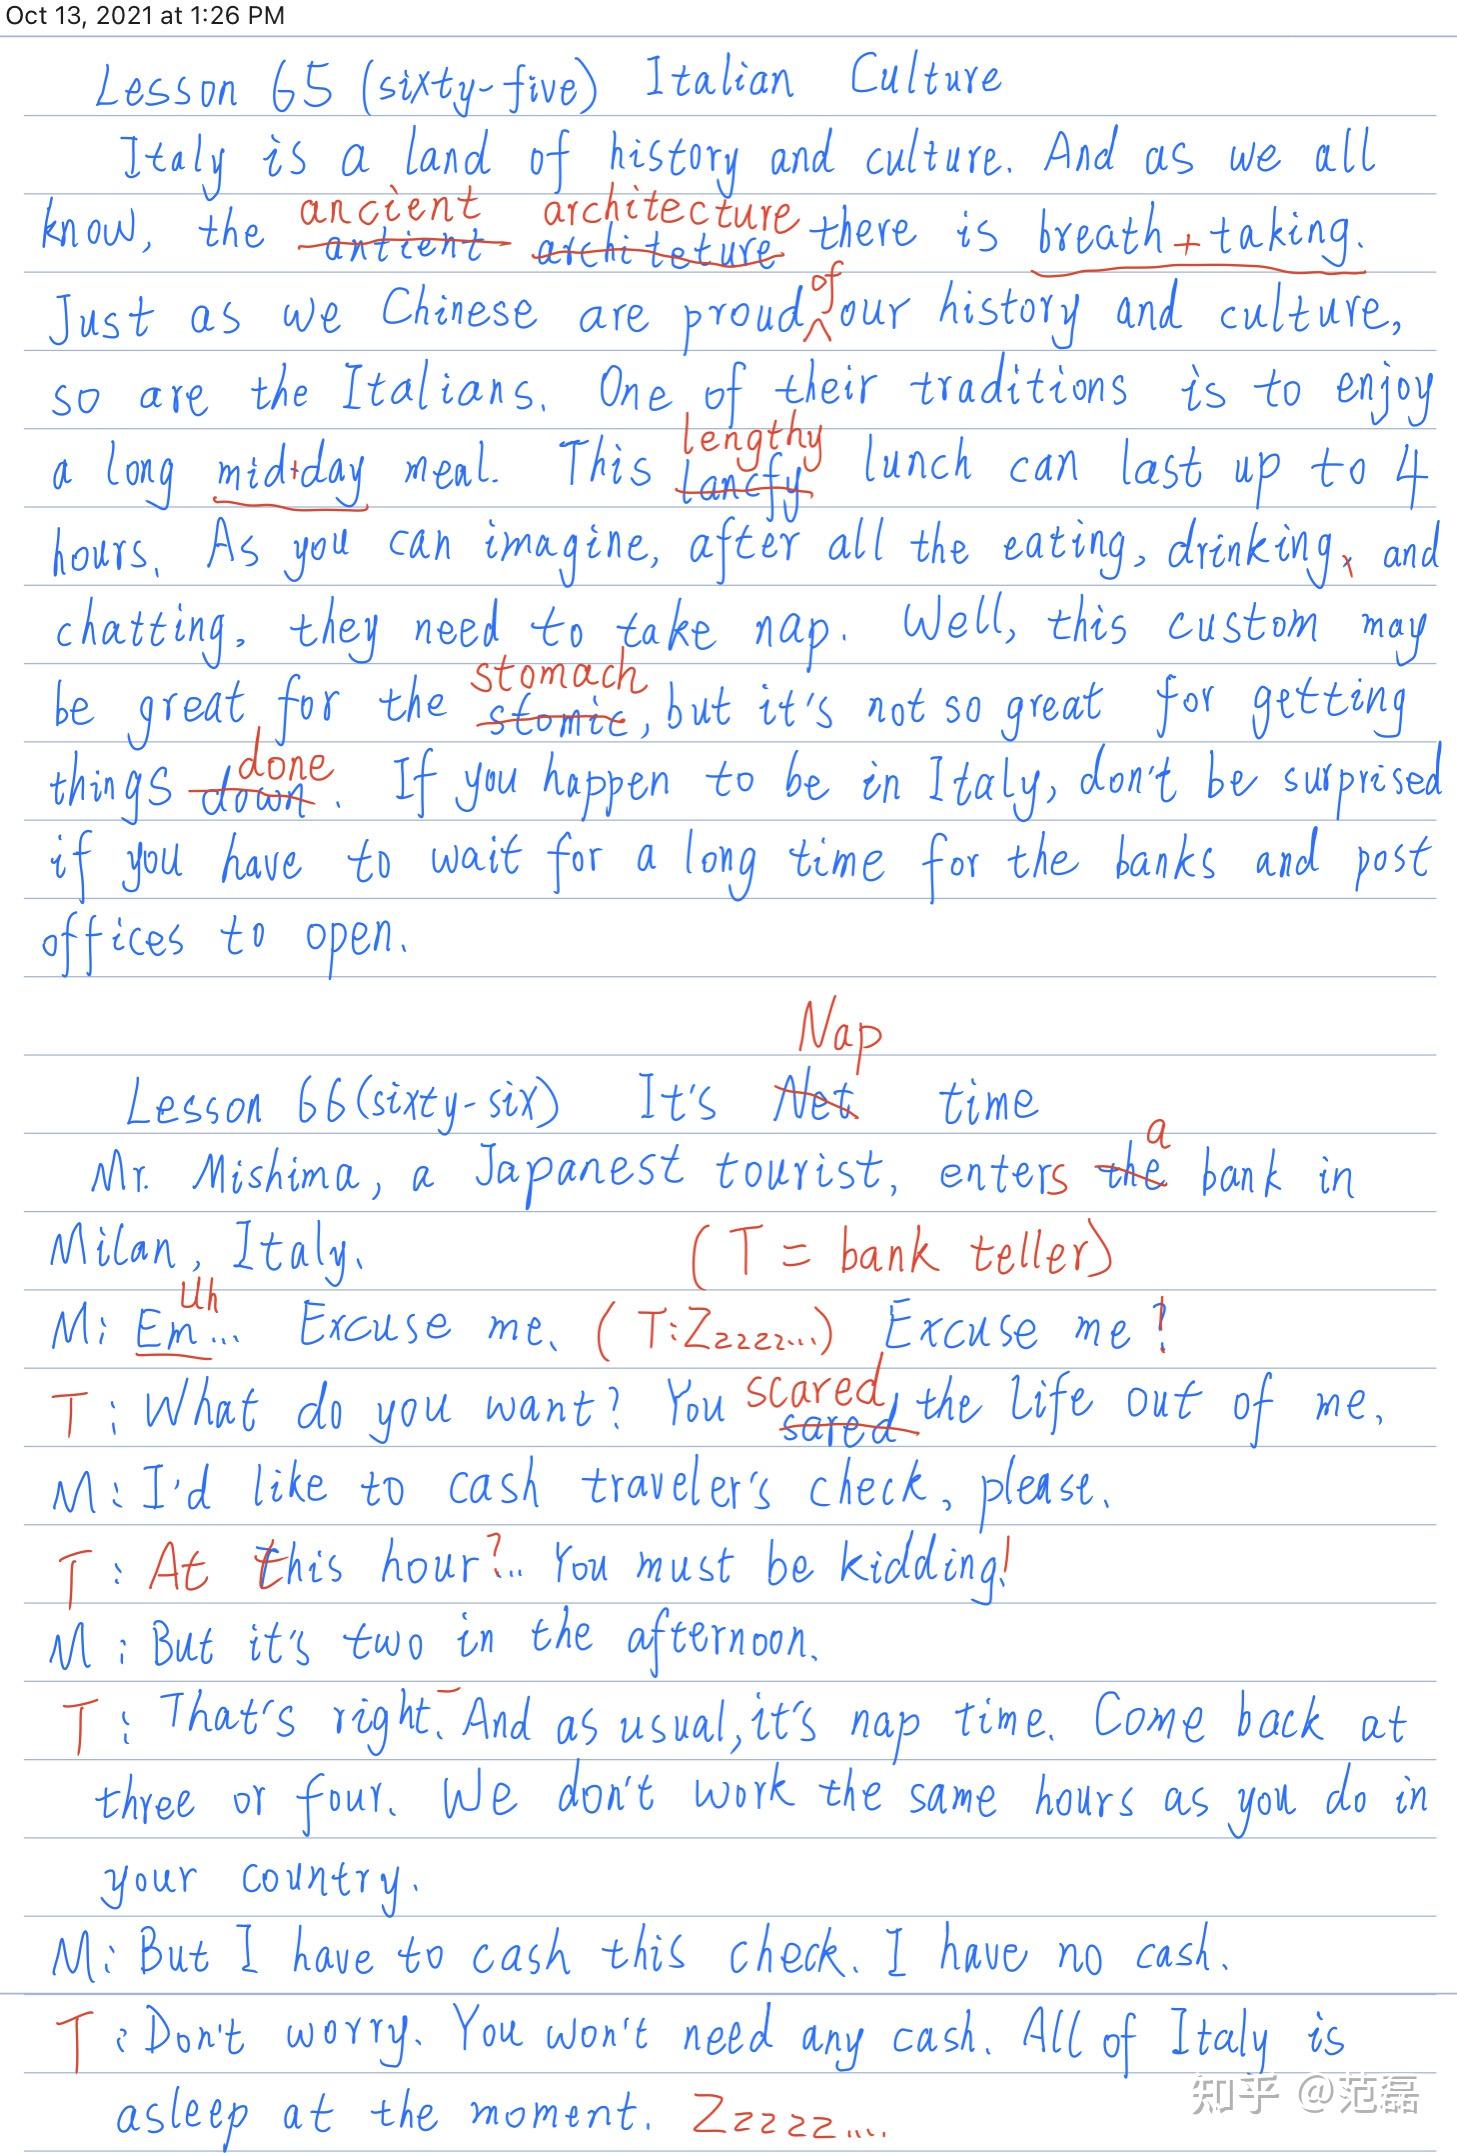 Oct 13, 2021 at 1:26 PM
Lesson 65 (sixty-five) Italian Culture
Italy is a land of history and culture. And as we all
ancient architecture
know, the antient architeture there is breath+taking.
of
Just as we Chinese are proud our history and culture,
so are the Italians. One of their traditions is to enjoy
lengthy
a long mid+day meal. This lancfy lunch can last up to 4
hours. As you can imagine, after all the eating, drinking, and
chatting, they need to take nap. Well, this custom may
stomach
be great for the stomic, but it's not so great for getting
done
things down. If you happen to be in Italy, don't be surprised
if you have to wait for a long time for the banks and post
offices to open.
Nap
Lesson 66 (sixty-six) It's Net time
a
Mr. Mishima, a Japanest tourist, enters the bank in
Milan, Italy. (T = bank teller)
Uh
M: Em... Excuse me. (T: Zzzzzz...) Excuse me!
scared
T: What do you want? You sared the life out of me.
M: I'd like to cash traveler's check, please.
T: At this hour?.. You must be kidding!
M: But it's two in the afternoon.
T: That's right. And as usual, it's nap time. Come back at
three or four. We don't work the same hours as you do in
your country.
M: But I have to cash this check. I have no cash.
T: Don't worry. You won't need any cash. All of Italy is
asleep at the moment. Zzzzzz....
知乎 @范磊